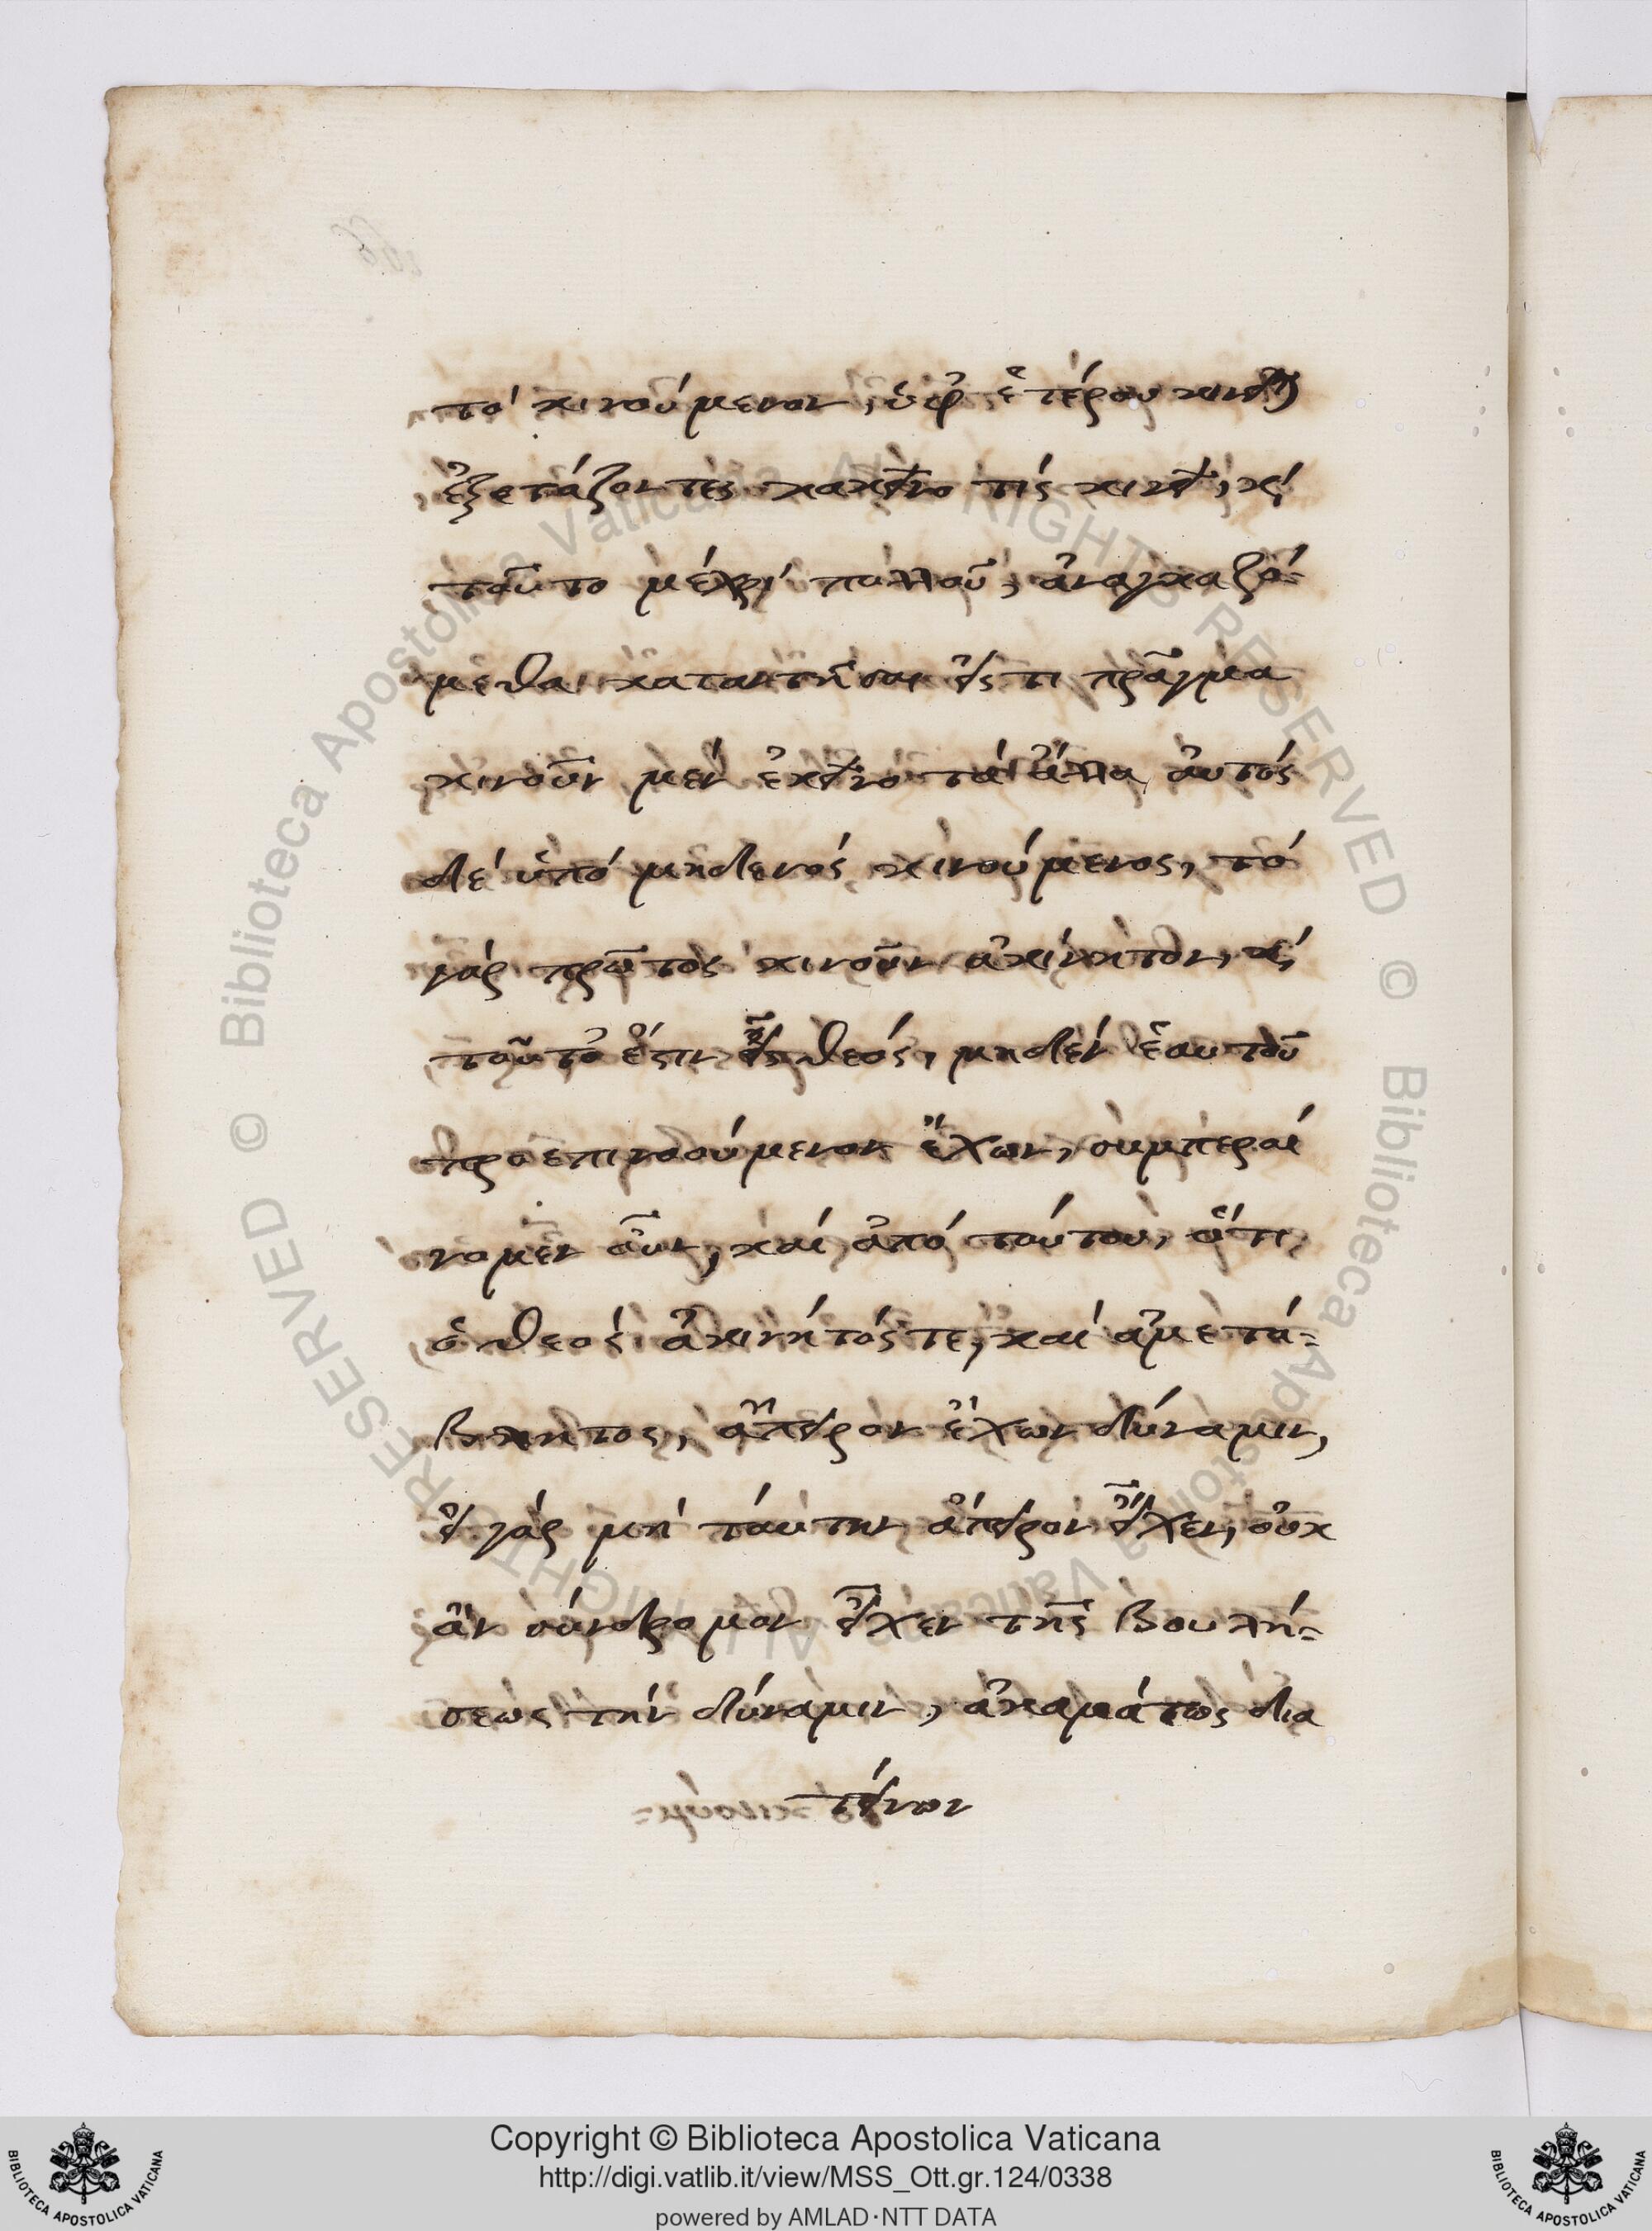 τὸ κινούμενον, ὑφ' ἑτέρου κινεῖται
ἐξετάζοντες κακεῖνο τίς κινεῖ, κὶ
τοῦτο μέχρι πολλοῦ, ἀναγκαζό-
μεθα καταντῆσαι εἴς τι πρᾶγμα
κινοῦν μὲν ἐκεῖνο τὰ ἄλλα, αὐτὸς
δὲ ὑπὸ μηδενὸς κινούμενος, τὸ
γὰρ πρῶτος κινοῦν ἀκίνητον, κὶ
τοῦτό ἐστιν εἷς θεός, μηδὲν ἑαυτοῦ
προεπινοούμενον ἔχων, συμπεραί
νομεν οὖν, καὶ ἀπὸ τούτου, ὅτι
ὁ θεὸς ἀκινήτός τε, καὶ ἀμετά-
βλητος, ἄπειρον ἔχων δύναμιν,
εἰ γὰρ μὴ ταύτην ἄπειρον εἶχεν, οὐκ
ἂν σύνδρομον εἶχεν τῆς βουλή-
σεως τὴν δύναμιν, ἀκαμάτως δια
τείνων
Copyright © Biblioteca Apostolica Vaticana
http://digi.vatlib.it/view/MSS_Ott.gr.124/0338
powered by AMLAD·NTT DATA
BIBLIOTECA APOSTOLICA VATICANA
BIBLIOTECA APOSTOLICA VATICANA
© Biblioteca Apostolica Vaticana ALL RIGHTS RESERVED
© Biblioteca Apostolica Vaticana ALL RIGHTS RESERVED